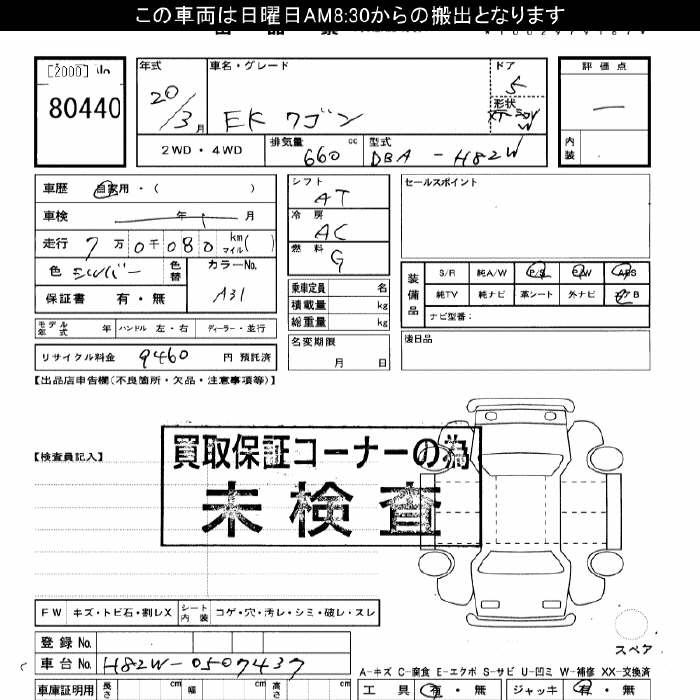 この車両は日曜日AM8:30からの搬出となります
[2000]
80440
年式 車名・グレード ドア 評価点
20/3月 EK ワゴン 5
形状
2WD・4WD 排気量 660 cc 型式 DBA - H82W
内装
車歴 自家用・( ) シフト AT セールスポイント
車検 年 月 冷房 AC
走行 7万0千080 km マイル( ) 燃料 G
色 シルバー 色替 カラーNo. A31
保証書 有・無
乗車定員 名
積載量 kg
総重量 kg
装備品 S/R 純A/W P/S P/W ABS
純TV 純ナビ 革シート 外ナビ エアB
ナビ型番:
モデル年式 年 ハンドル 左・右 ディーラー・並行 名変期限 月 日 後日品
リサイクル料金 9460 円 預託済
【出品店申告欄(不良箇所・欠品・注意事項等)】
【検査員記入】
買取保証コーナーの為
未検査
FW キズ・トビ石・割レX シート内装 コゲ・穴・汚レ・シミ・破レ・スレ
スペア
登録 No.
車台 No. H82W-0507437
A-キズ C-腐食 E-エクボ S-サビ U-凹ミ W-補修 XX-交換済
車庫証明用 長さ cm 幅 cm 高さ cm 工具 有・無 ジャッキ 有・無